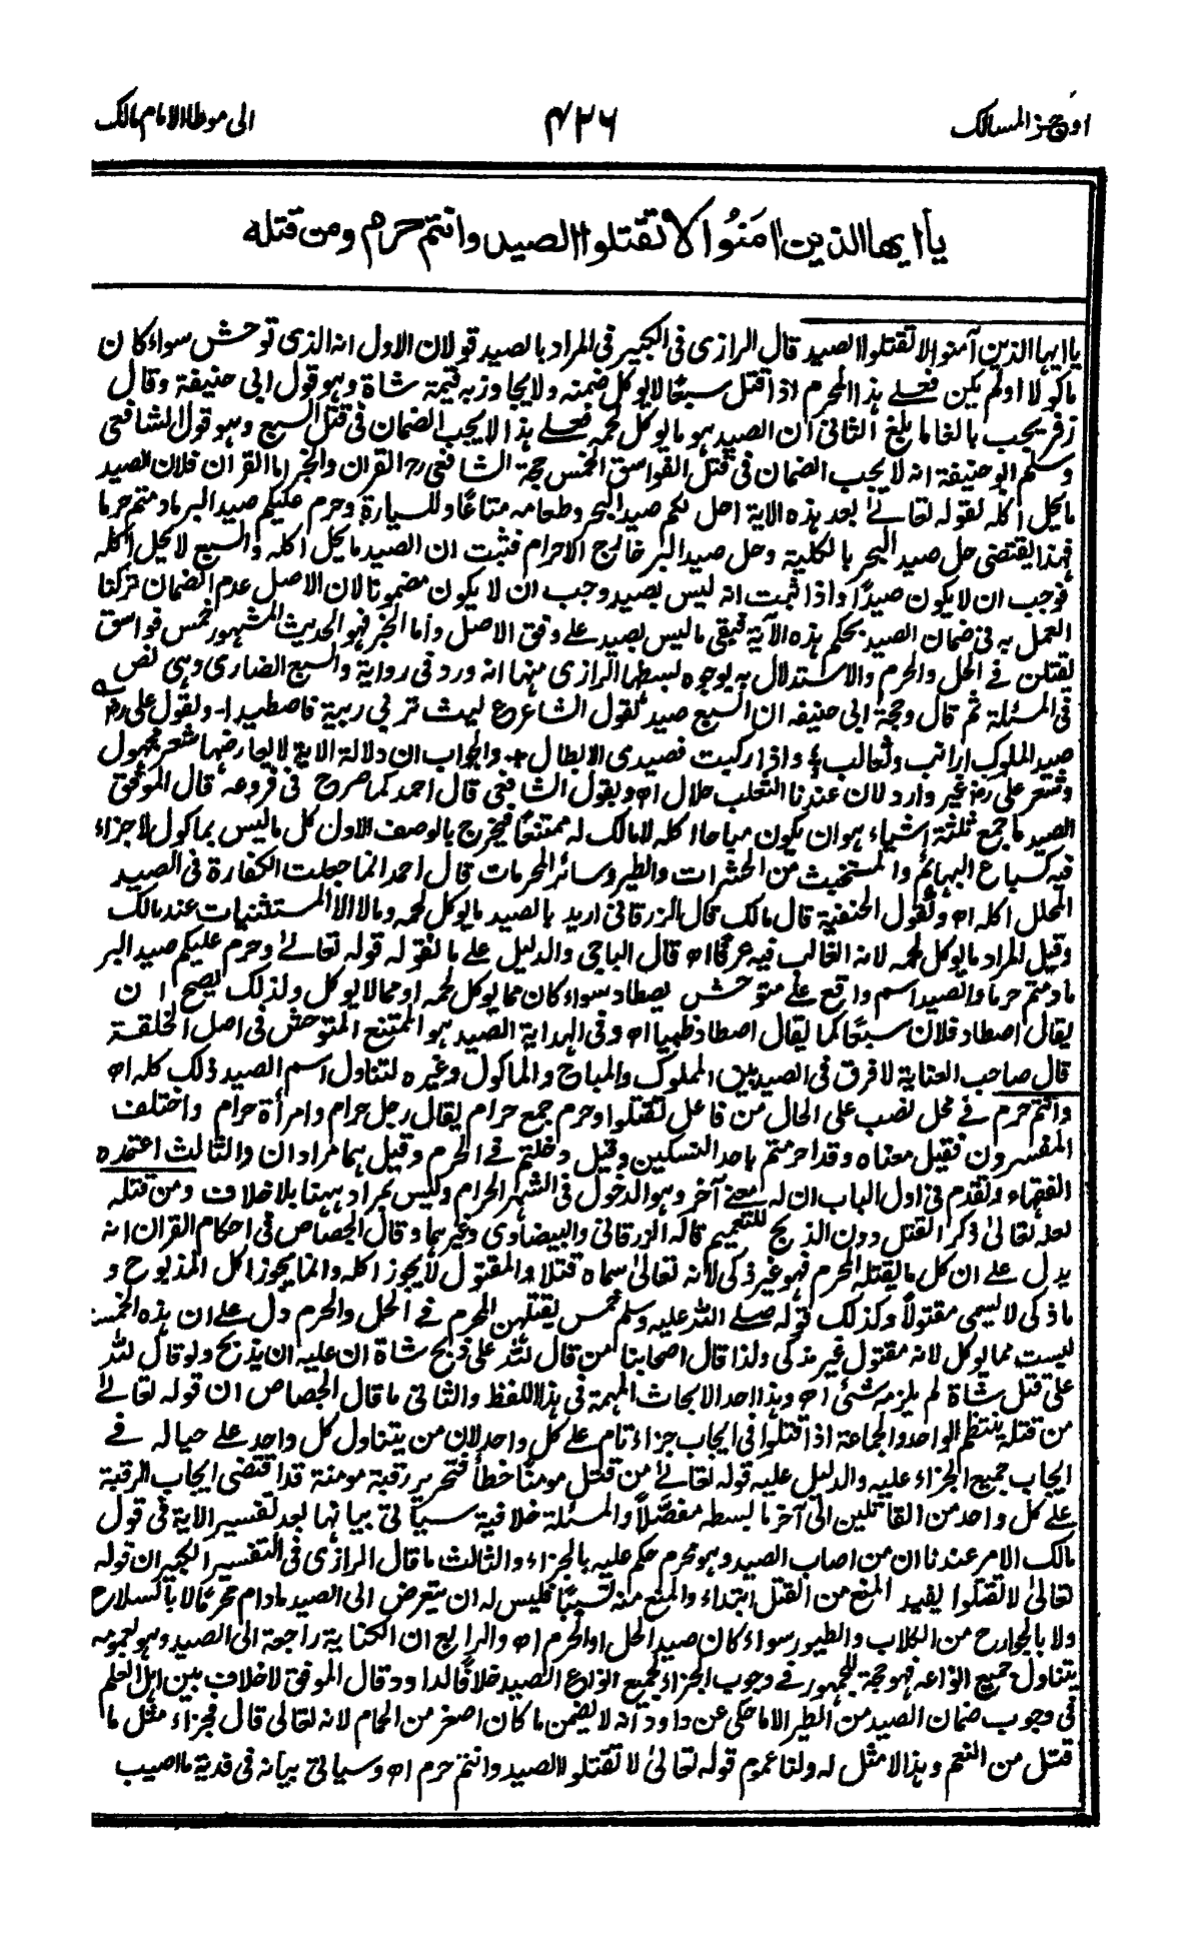 اوجز المسالك
۴۲۶
الى موطا الامام مالك
يأايها الذين امَنُوا لا تقتلوا الصيد وانتم حرم ومن قتله
يا ايها الذين آمنوا لا تقتلوا الصيد قال الرازى فى الكبير فى المراد بالصيد قولان الاول انه الذى توحش سواء كان
ماكولا اولم يكن فعلے هذا المحرم اذا قتل سبعًا لا يوكل ضمنه ولا يجاوز به قيمة شاة وهو قول ابى حنيفة وقال
زفر يجب بالغا ما بلغ الثانى ان الصيد هو ما يوكل لحمه فعلے هذا لا يجب الضمان فى قتل السبع وهو قول الشافعى
وسلم ابو حنيفة انه لا يجب الضمان فى قتل الفواسق الخمس حجة الشافعى رح القران والخبر اما القران فلان الصيد
ما يحل اكله لقوله تعالےٰ بعد هذه الاية احل لكم صيد البحر وطعامه متاعًا وللسيارة وحرم عليكم صيد البر ما دمتم حرما
فهذا يقتضى حل صيد البحر بالكلية وحل صيد البر خارج الاحرام فثبت ان الصيد ما يحل اكله والسبع لا يحل اكله
فوجب ان لا يكون صيدًا واذا ثبت انه ليس بصيد وجب ان لا يكون مضمونا لان الاصل عدم الضمان تركنا
العمل به فى ضمان الصيد بحكم هذه الآية فبقى ما ليس بصيد علے وفق الاصل واما الخبر فهو الحديث المشهور خمس فواسق
يقتلن فے الحل والحرم والاستدلال به بوجوه بسطها الرازى منها انه ورد فى رواية والسبع الضارى وهى نص
فى المسئلة ثم قال وحجة ابى حنيفه ان السبع صيد كقول الشاعر ع ليث تربى ربية فاصطيدا۔ ولقول على رض
صيد الملوك ارانب وثعالب ؛ واذا ركبت فصيدى الابطال ؛ والجواب ان دلالة الاية لا يعارضها شعر مجهول
وشعر على رض غير وارد لان عندنا الثعلب حلال اھ وبقول الشافعى قال احمد كما صرح فى فروعه قال الموفق
الصيد ما جمع ثلثة اشياء هو ان يكون مباحا اكله لا مالك له ممتنعًا فيخرج بالوصف الاول كل ما ليس بماكول لا جزاء
فيه كسباع البهائم والمستخبث من الحشرات والطير وسائر المحرمات قال احمد انما جعلت الكفارة فى الصيد
المحلل اكله اھ وبقول الحنفية قال مالك قال الزرقانى اريد بالصيد ما يوكل لحمه وما لا الا المستثنيات عند مالك
وقيل المراد ما يوكل لحمه لانه الغالب فيه عرفًا اھ قال الباجى والدليل علے ما نقوله قوله تعالےٰ وحرم عليكم صيد البر
ما دمتم حرما والصيد اسم واقع علے متوحش يصطاد سواء كان مما يوكل لحمه او مما لا يوكل ولذلك يصح ان
يقال اصطاد فلان سبعًا كما يقال اصطاد ظبيا اھ وفى الهداية الصيد هو الممتنع المتوحش فى اصل الخلقة
قال صاحب العناية لا فرق فى الصيد بين المملوك والمباح والماكول وغيره لتناول اسم الصيد ذلك كله اھ
وانتم حرم فے محل نصب على الحال من فاعل تقتلوا وحرم جمع حرام يقال رجل حرام وامرأة حرام واختلف
المفسرون فقيل معناه وقد احرمتم باحد النسكين وقيل دخلتم فے الحرم وقيل هما مرادان والثالث اعتمده
الفقهاء وتقدم فى اول الباب ان له معنے آخر وهو الدخول فى الشهر الحرام وليس بمراد ههنا بلا خلاف ومن قتله
بعد تعالىٰ ذكر القتل دون الذبح للتعميم قاله الزرقانى والبيضاوى وغيرهما وقال الجصاص فى احكام القران انه
يدل علے ان كل ما يقتله المحرم فهو غير ذكى لانه تعالىٰ سماه قتلا والمقتول لا يجوز اكله وانما يجوز اكل المذبوح و
ما ذكى لا يسمى مقتولاً وكذلك قوله صلے الله عليه وسلم خمس يقتلهن المحرم فے الحل والحرم دل علے ان هذه الخمسة
ليست مما يوكل لانه مقتول غير مذكى ولذا قال اصحابنا من قال لله على ذبح شاة ان عليه ان يذبح ولو قال لله
على قتل شاة لم يلزمه شئ اھ وهذا احد الابحاث المهمة فى هذا اللفظ والثانى ما قال الجصاص ان قوله تعالےٰ
من قتله ينتظم الواحد والجماعة اذا قتلوا فى ايجاب جزاء تام علے كل واحد لان من يتناول كل واحد علے حياله فے
ايجاب جميع الجزاء عليه والدليل عليه قوله تعالےٰ من قتل مومنًا خطأ فتحرير رقبة مومنة قد اقتضى ايجاب الرقبة
علے كل واحد من القاتلين الى آخر ما بسطه مفصلاً والمسئلة خلافية سياتى بيانها بعد تفسير الاية فى قول
مالك الامر عندنا ان من اصاب الصيد وهو محرم حكم عليه بالجزاء والثالث ما قال الرازى فى التفسير الكبير ان قوله
تعالىٰ لا تقتلوا يفيد المنع من القتل ابتداء والمنع منه تسببًا فليس له ان يتعرض الى الصيد ما دام محرمًا لا بالسلاح
ولا بالجوارح من الكلاب والطيور سواء كان صيد الحل او الحرم اھ والرابع ان الكناية راجعة الى الصيد وهو لعمومه
يتناول جميع انواعه فهو حجة للجمهور فے وجوب الجزاء لجميع انواع الصيد خلافًا لداود قال الموفق لا خلاف بين اهل العلم
فى وجوب ضمان الصيد من الطير الا ما حكى عن داود انه لا يضمن ما كان اصغر من الحمام لانه تعالى قال فجزاء مثل ما
قتل من النعم وهذا لا مثل له ولنا عموم قوله تعالىٰ لا تقتلوا الصيد وانتم حرم اھ وسياتى بيانه فى فدية ما اصيب